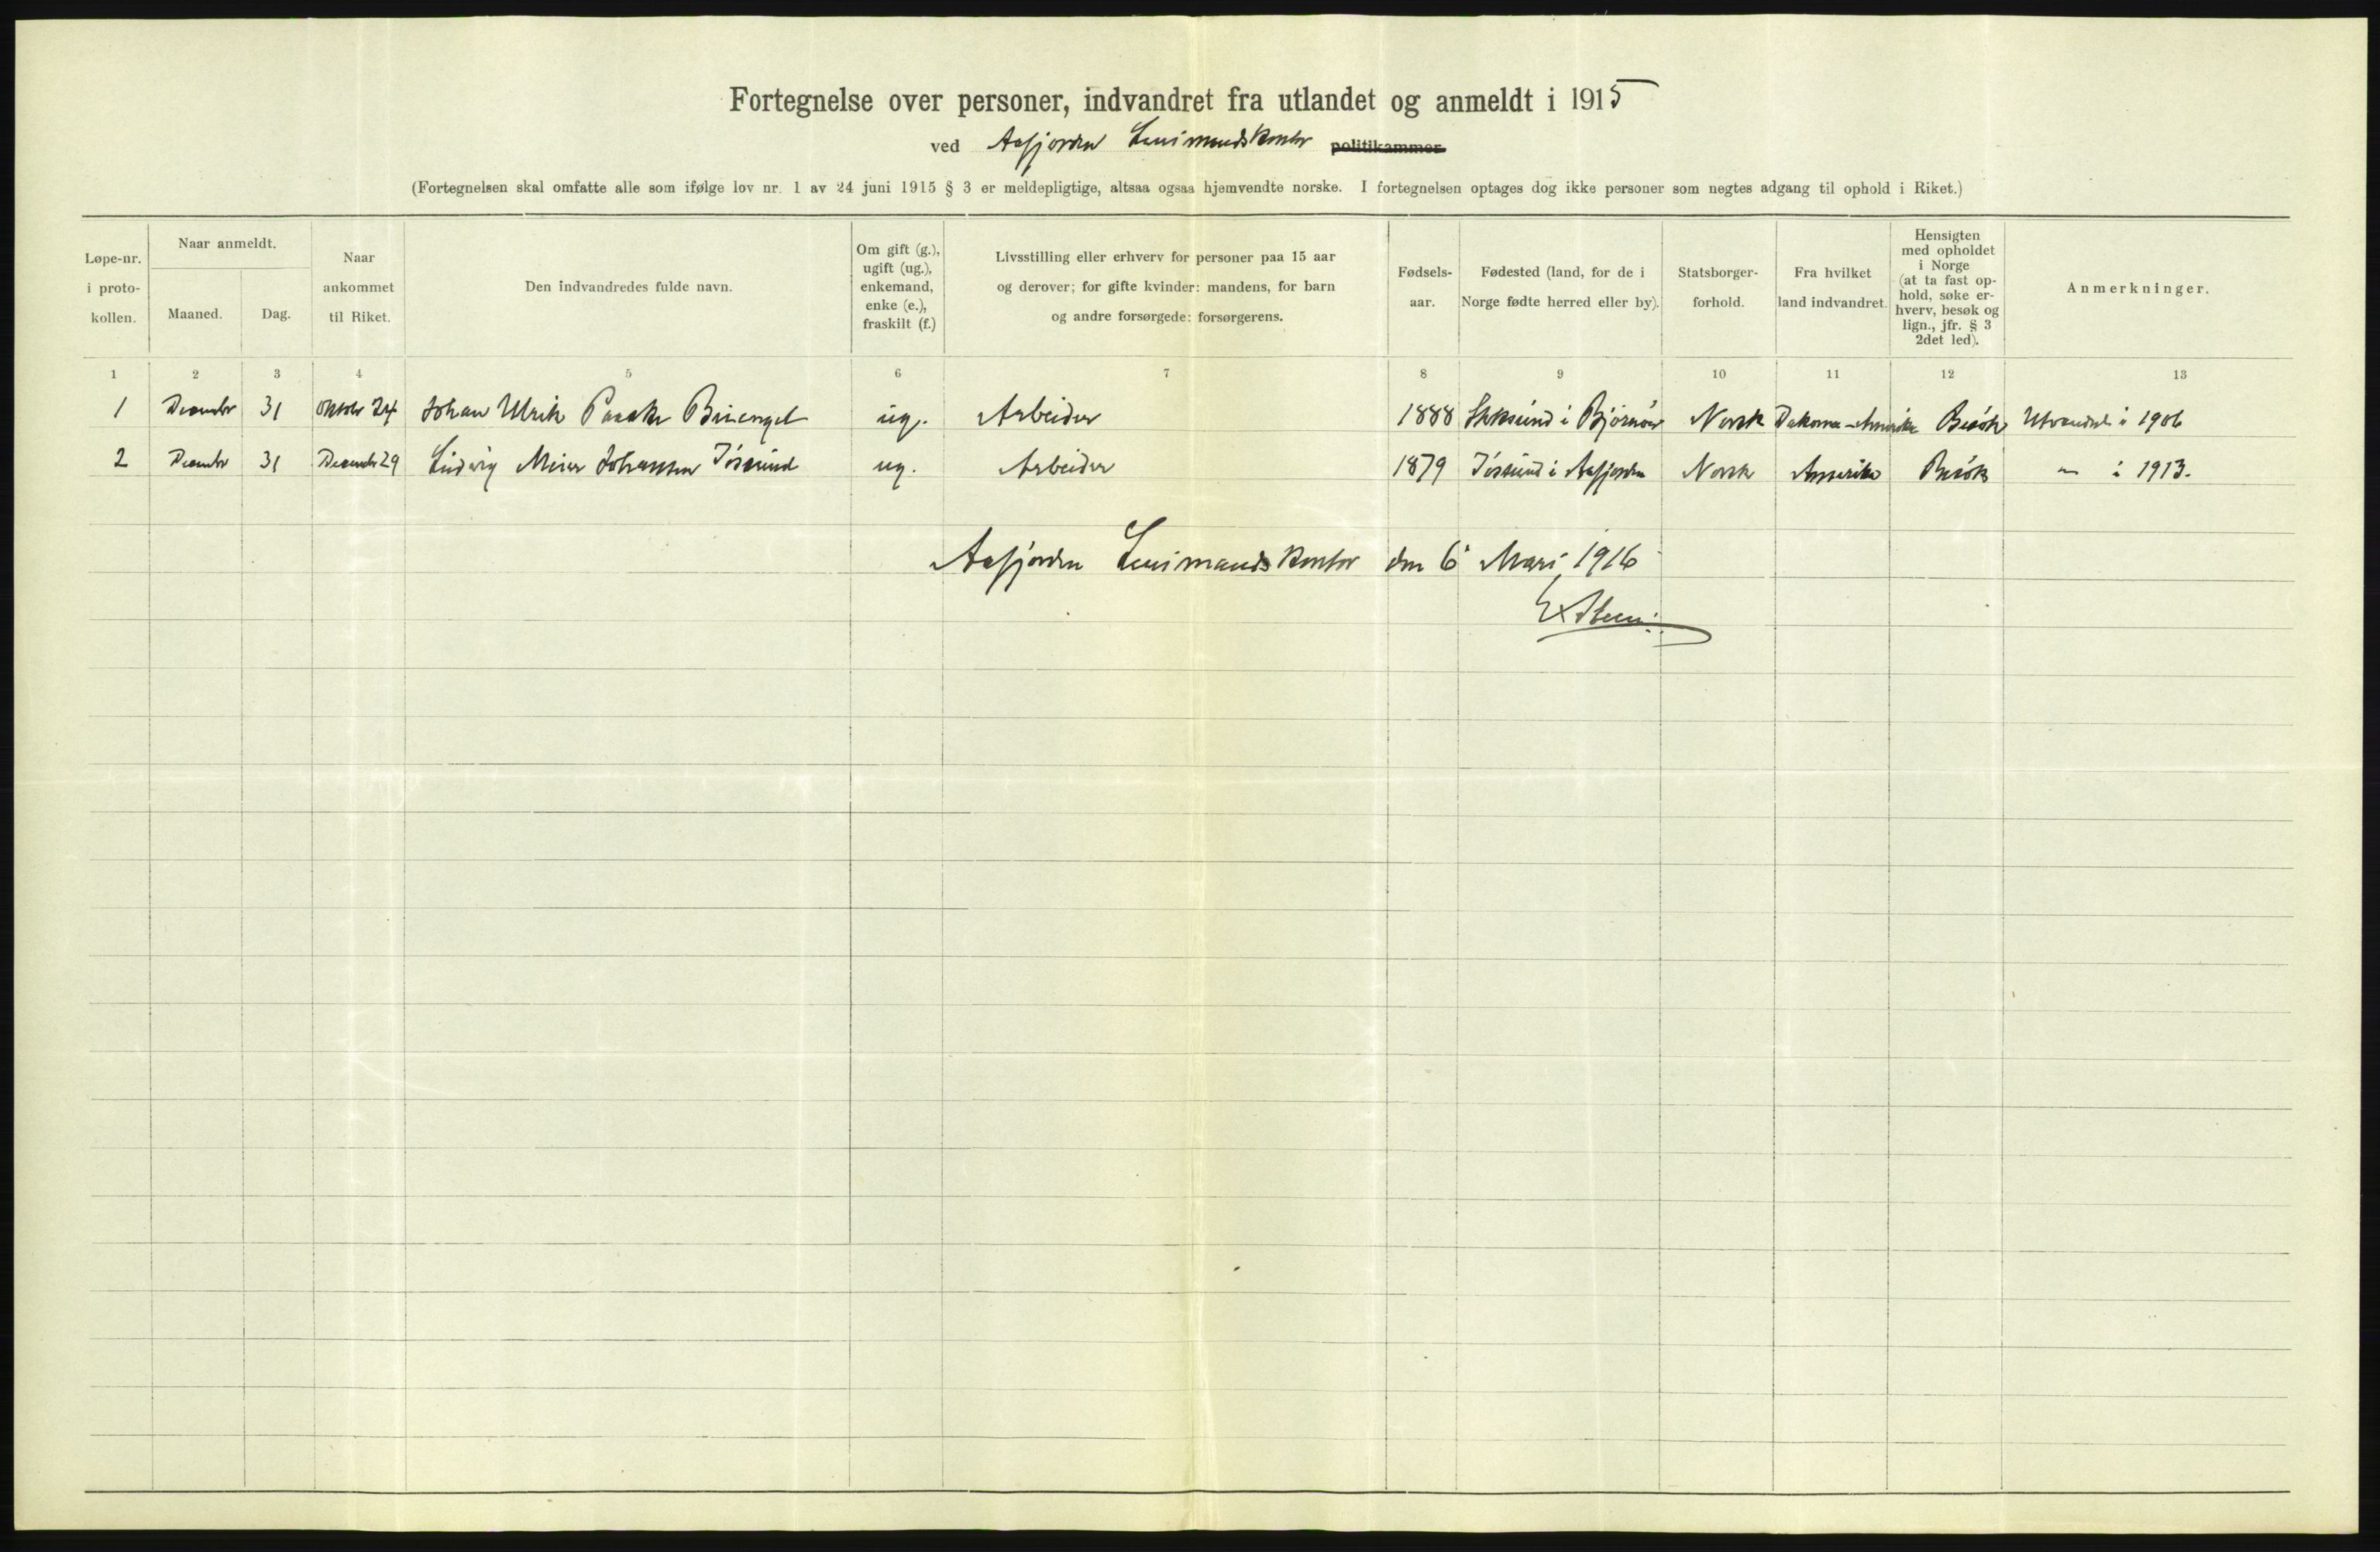 Fortegnelse over personer, indvandret fra utlandet og anmeldt i 1915
ved Aafjorden Lensmandskontor politikammer
(Fortegnelsen skal omfatte alle som ifølge lov nr. 1 av 24 juni 1915 § 3 er meldepligtige, altsaa ogsaa hjemvendte norske. I fortegnelsen optages dog ikke personer som negtes adgang til ophold i Riket.)
Løpe-nr. i proto-kollen.
Naar anmeldt.
Maaned.
Dag.
Naar ankommet til Riket.
Den indvandredes fulde navn.
Om gift (g.), ugift (ug.), enkemand, enke (e.), fraskilt (f.)
Livsstilling eller erhverv for personer paa 15 aar og derover; for gifte kvinder: mandens, for barn og andre forsørgede: forsørgerens.
Fødsels-aar.
Fødested (land, for de i Norge fødte herred eller by).
Statsborger-forhold.
Fra hvilket land indvandret.
Hensigten med opholdet i Norge (at ta fast op-hold, søke er-hverv, besøk og lign., jfr. § 3 2det led).
Anmerkninger.
1 2 3 4 5 6 7 8 9 10 11 12 13
1 December 31 Oktober 24 Johan Ulrik ug. Arbeider 1888 Stoksund i Bjørnør Norsk Amerika Besøk Utvandret i 1906
2 December 31 December 29 Ludvig Meier Johansen Jøssund ug. Arbeider 1879 Jøssund i Aafjorden Norsk Amerika Besøk — i 1913.
Aafjorden Lensmandskontor den 6 1916